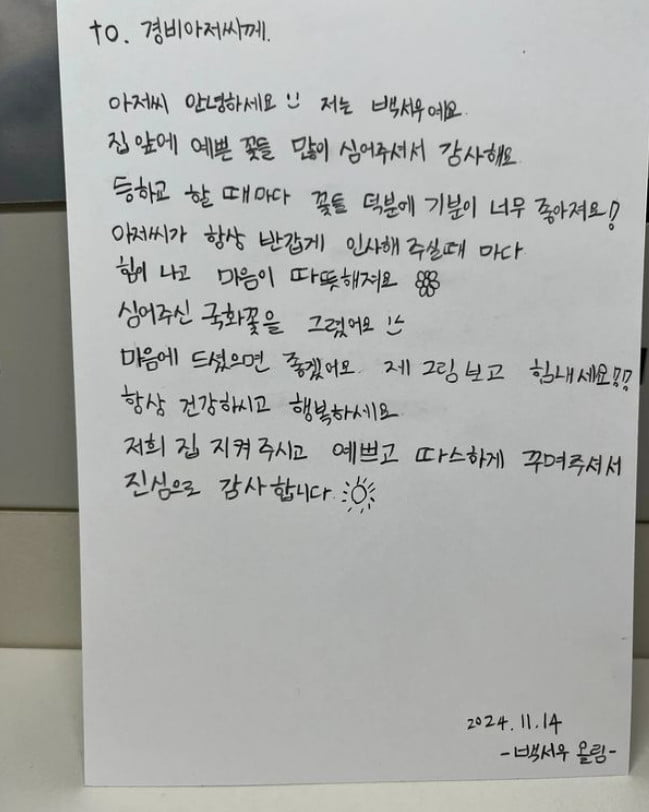 to. 경비아저씨께.
아저씨 안녕하세요 저는 백서우예요.
집 앞에 예쁜 꽃들 많이 심어주셔서 감사해요
등하교 할 때마다 꽃들 덕분에 기분이 너무 좋아져요!
아저씨가 항상 반갑게 인사해 주실때 마다
힘이 나고 마음이 따뜻해져요
심어주신 국화꽃을 그렸어요
마음에 드셨으면 좋겠어요. 제 그림 보고 힘내세요!!
항상 건강하시고 행복하세요
저희 집 지켜주시고 예쁘고 따스하게 꾸며주셔서
진심으로 감사합니다.
2024.11.14
-백서우 올림-